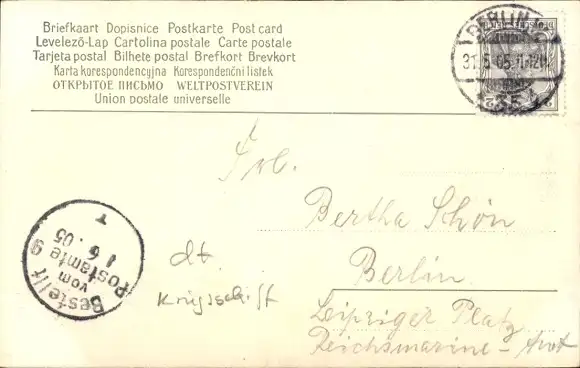 Briefkaart Dopisnice Postkarte Post card
Levelező-Lap Cartolina postale Carte postale
Tarjeta postal Bilhete postal Brefkort Brevkort
Karta korespondencyjna Korespondenční listek
ОТКРЫТОЕ ПИСЬМО WELTPOSTVEREIN
Union postale universelle
BERLIN
31.5.05.
Bestellt
vom
Postamte 9
1 6.05
Bertha Schön
Berlin
Leipziger Platz
Reichsmarine-Amt
dt.
Kriegsschiff